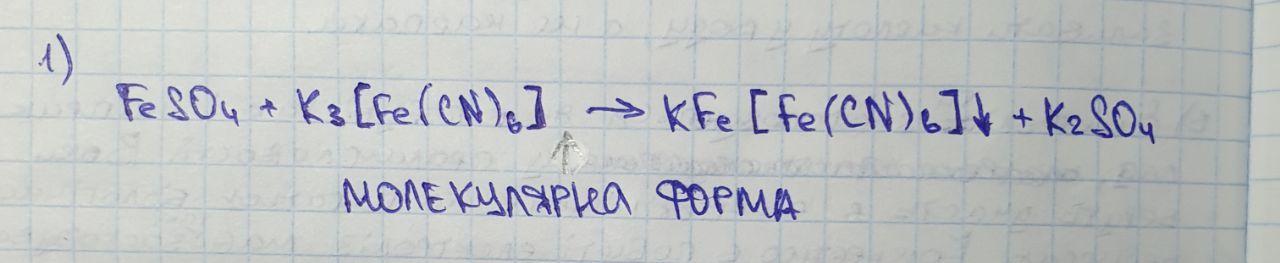 1)
FeSO4 + K3[Fe(CN)6] → KFe[Fe(CN)6]↓ + K2SO4
↑
МОЛЕКУЛЯРНА ФОРМА